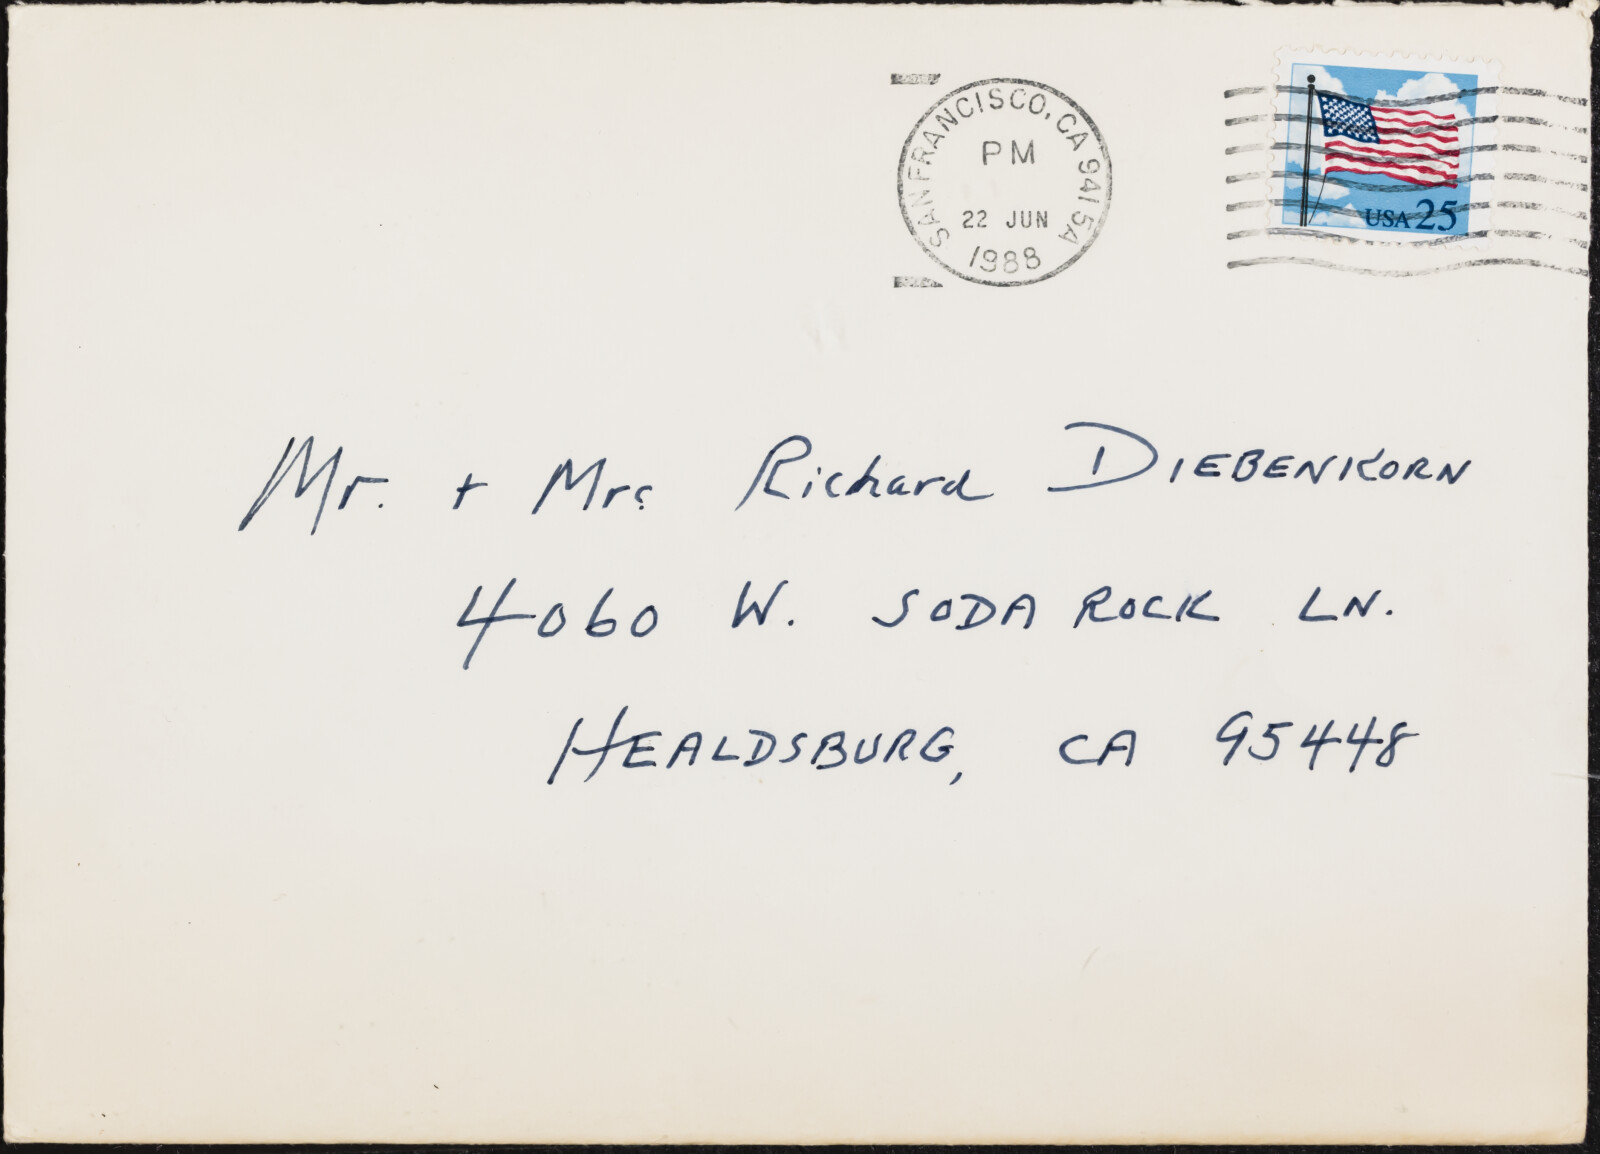 SAN FRANCISCO, CA 9415A
PM
22 JUN
1988
USA 25
Mr. + Mrs Richard DIEBENKORN
4060 W. SODA ROCK LN.
HEALDSBURG, CA 95448